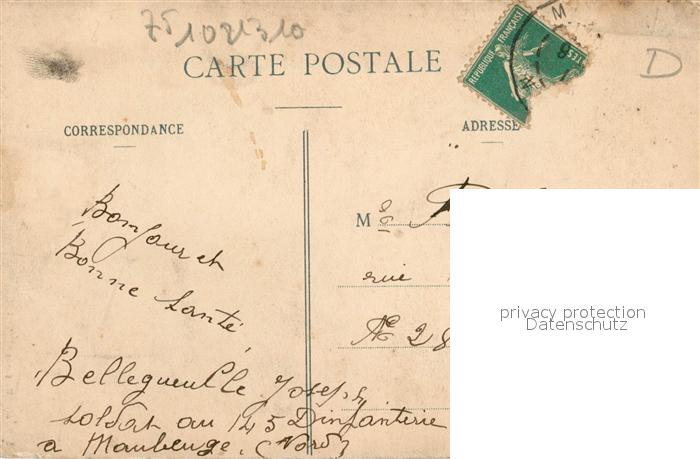 75 1021310
CARTE POSTALE
RÉPUBLIQUE FRANÇAISE
D
CORRESPONDANCE
ADRESSE
Bonjour et
Bonne Santé
Bellegueulle Joseph
soldat au 145 D'infanterie
a Maubeuge. (Nord)
M
rue
No 28
privacy protection
Datenschutz